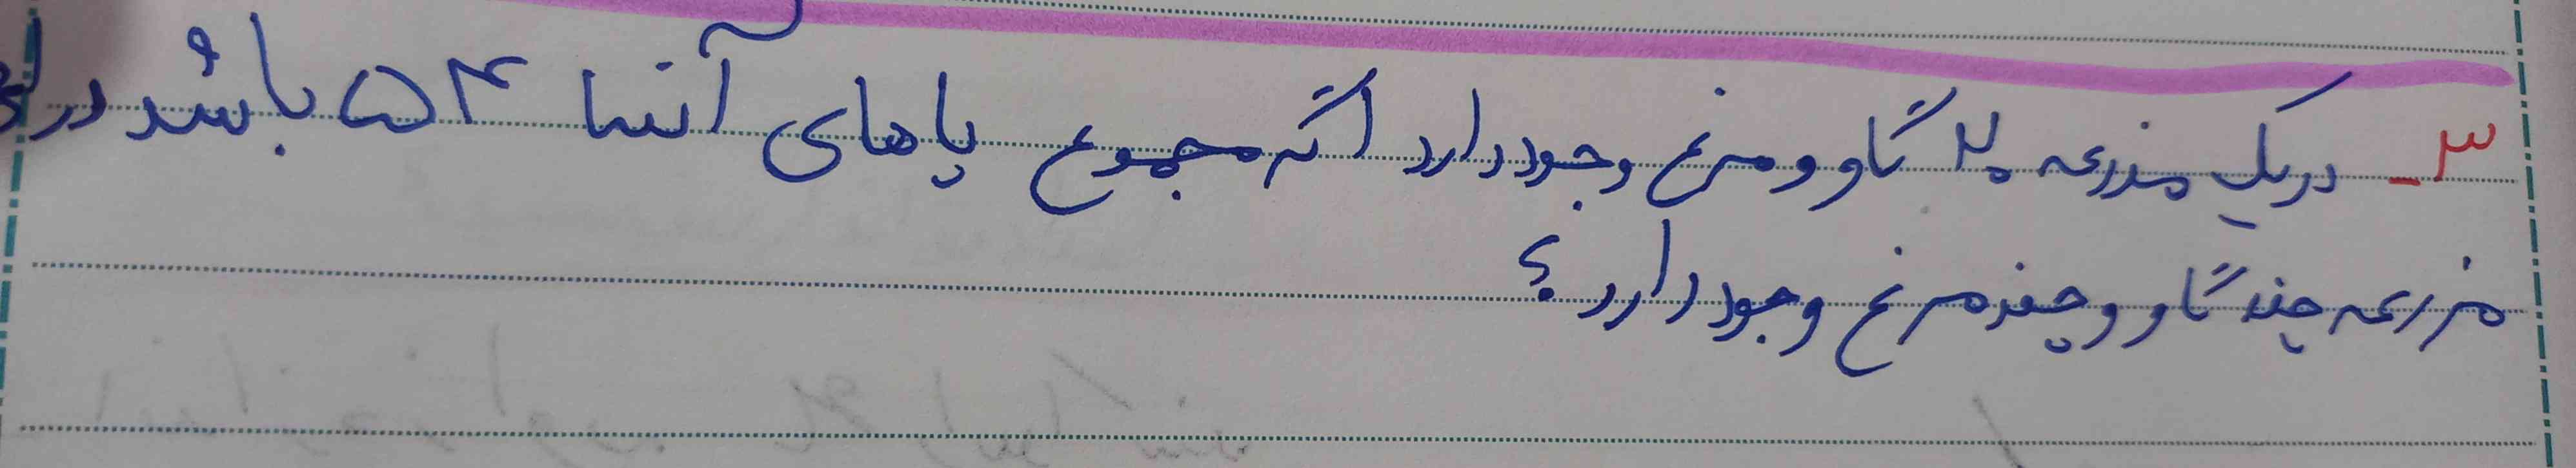 ۳- در یک مزرعه ۲۰ گاو و مرغ وجود دارد اگر مجموع پاهای آنها ۵۴ باشد در این
مزرعه چند گاو و چند مرغ وجود دارد؟